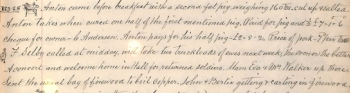 Anton came before breakfast with a second fat pig weighing 160 lbs. cut up & salted
Anton takes when cured one half of the first mentioned pig. Paid for pig and £2-7-0-6
cheque for owner-b. Anderson. Anton pays for his half pig-£2-8-2. Price of pork-7
F. Lilly called at midday, and take two truckloads of ours next week. In evening the
a concert and welcome home in Hall for returned soldiers. Mum Eva & Mrs Walker up there
Sent the usual bay of firewood to bail copper. John & Bertie getting & carting in firewood